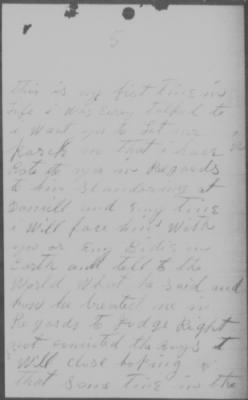 5
this is my first time in
Life i was Evry talked to
i want you to Let me
know on that i have
Rote to you in Regards
to him slandering at
and Eny time
i Will face him With
you or Eny Bidis on
Earth and tell to the
World What he said and
how he treated me in
Regards to Judge Right
not convicted the Boys I
Will close hoping
that some time in the